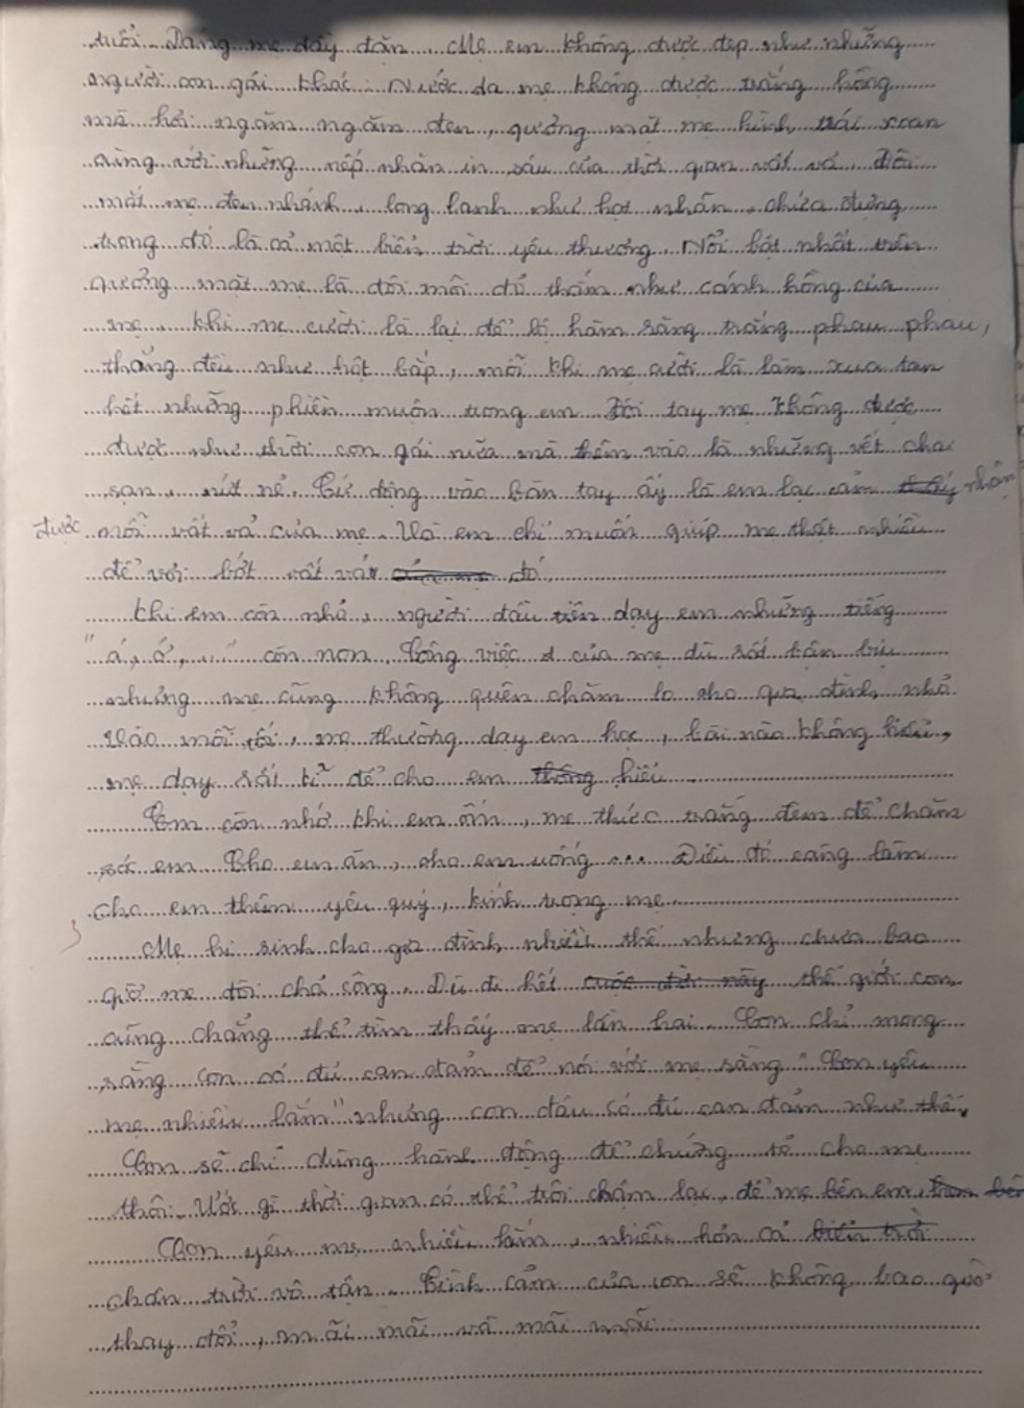 tuổi. Dáng mẹ đầy đặn. Mẹ em không được đẹp như những
người con gái khác. Nước da mẹ không được trắng hồng
mà hơi ngăm ngăm đen, gương mặt mẹ hình trái xoan
cùng với những nếp nhăn in sâu của thời gian vất vả. Đôi
mắt mẹ đen nhánh, long lanh như hạt nhãn, chứa đựng
trong đó là cả một biển trời yêu thương. Nổi bật nhất trên
gương mặt mẹ là đôi môi đỏ thắm như cánh hồng của
mẹ. Khi mẹ cười là lại để lộ hàm răng trắng phau phau,
thẳng đều như hạt bắp, mỗi khi mẹ cười là làm xua tan
hết những phiền muộn trong em. Đôi tay mẹ không được
được như thời con gái nữa mà thêm vào là những vết chai
sạn, nứt nẻ. Cứ động vào bàn tay ấy là em lại cảm nhận
được nỗi vất vả của mẹ. Và em chỉ muốn giúp mẹ thật nhiều
để vơi bớt vất vả đó.
Khi em còn nhỏ, người đầu tiên dạy em những tiếng
"á, ớ, ..." còn non. Công việc của mẹ dù rất bận bịu
nhưng mẹ cũng không quên chăm lo cho gia đình nhỏ.
Vào mỗi tối, mẹ thường dạy em học, bài nào không hiểu,
mẹ dạy rất kĩ để cho em hiểu.
Em còn nhớ khi em ốm, mẹ thức trắng đêm để chăm
sóc em. Cho em ăn, cho em uống ... Điều đó càng làm
cho em thêm yêu quý, kính trọng mẹ.
Mẹ hi sinh cho gia đình nhiều thế nhưng chưa bao
giờ mẹ đòi chả công. Dù đi hết thế giới con
cũng chẳng thể tìm thấy mẹ lần hai. Con chỉ mong
rằng con có đủ can đảm để nói với mẹ rằng "Con yêu
mẹ nhiều lắm" nhưng con đâu có đủ can đảm như thế.
Con sẽ chỉ dùng hành động để chứng tỏ cho mẹ
thôi. Ước gì thời gian có thể trôi chậm lại, để mẹ bên em,
Con yêu mẹ nhiều lắm, nhiều hơn cả
chân trời vô tận. Tình cảm của con sẽ không bao giờ
thay đổi, mãi mãi và mãi mãi.